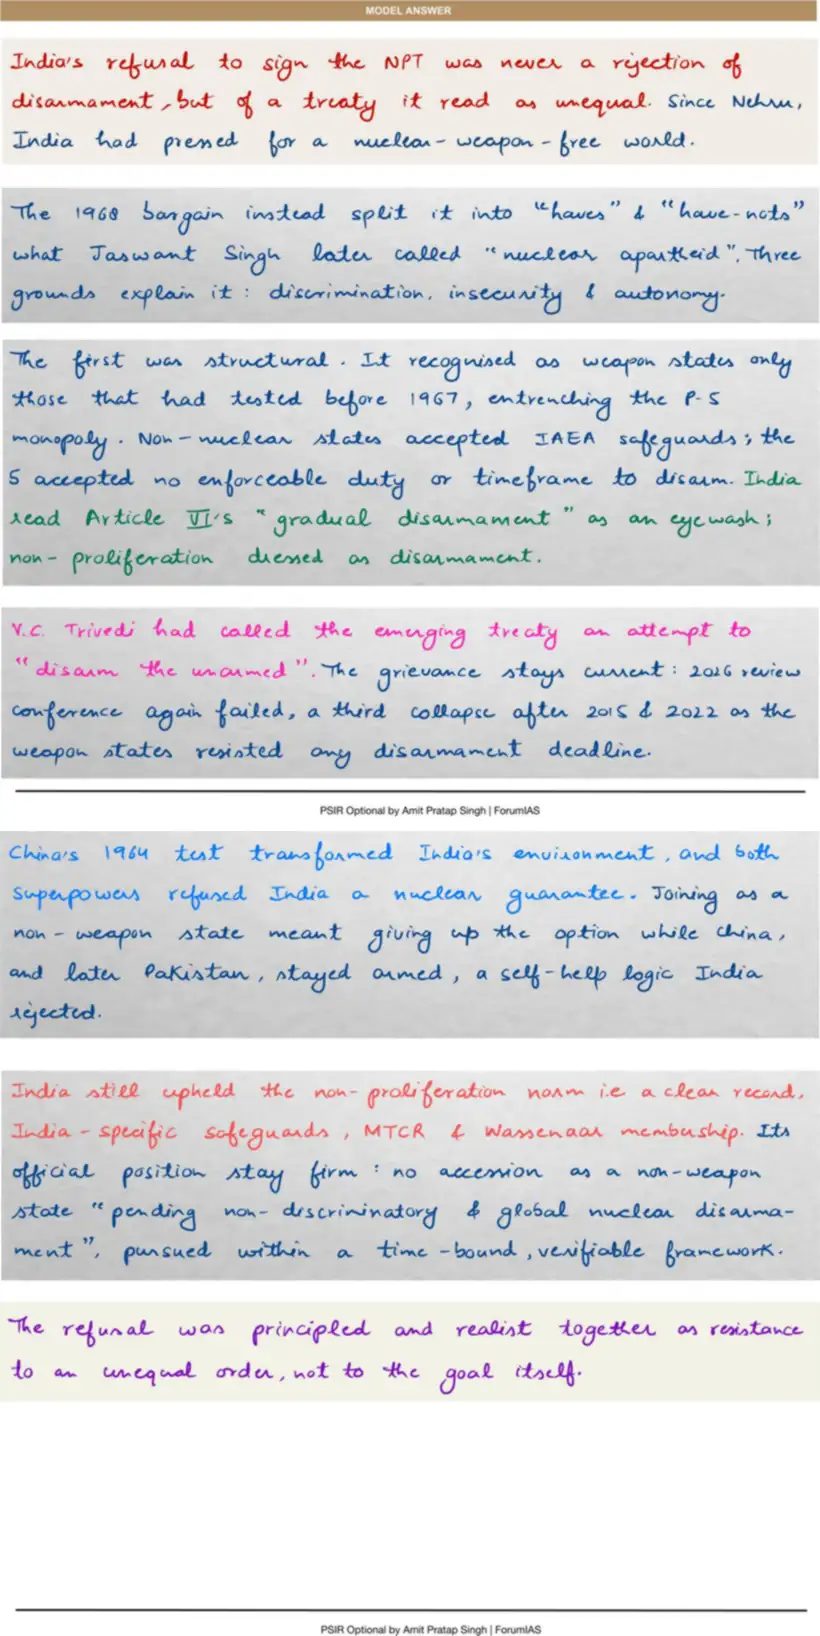 MODEL ANSWER
India's refusal to sign the NPT was never a rejection of
disarmament, but of a treaty it read as unequal. Since Nehru,
India had pressed for a nuclear-weapon-free world.
The 1968 bargain instead split it into "haves" & "have-nots"
what Jaswant Singh later called "nuclear apartheid". Three
grounds explain it : discrimination, insecurity & autonomy.
The first was structural. It recognised as weapon states only
those that had tested before 1967, entrenching the P-5
monopoly. Non-nuclear states accepted IAEA safeguards; the
5 accepted no enforceable duty or timeframe to disarm. India
read Article VI's "gradual disarmament" as an eyewash;
non-proliferation dressed as disarmament.
V.C. Trivedi had called the emerging treaty an attempt to
"disarm the unarmed". The grievance stays current : 2026 review
conference again failed, a third collapse after 2015 & 2022 as the
weapon states resisted any disarmament deadline.
PSIR Optional by Amit Pratap Singh | ForumIAS
China's 1964 test transformed India's environment, and both
Superpowers refused India a nuclear guarantee. Joining as a
non-weapon state meant giving up the option while China,
and later Pakistan, stayed armed, a self-help logic India
rejected.
India still upheld the non-proliferation norm i.e a clean record,
India-specific safeguards, MTCR & Wassenaar membership. Its
official position stay firm : no accession as a non-weapon
state "pending non-discriminatory & global nuclear disarma-
ment", pursued within a time-bound, verifiable framework.
The refusal was principled and realist together as resistance
to an unequal order, not to the goal itself.
PSIR Optional by Amit Pratap Singh | ForumIAS